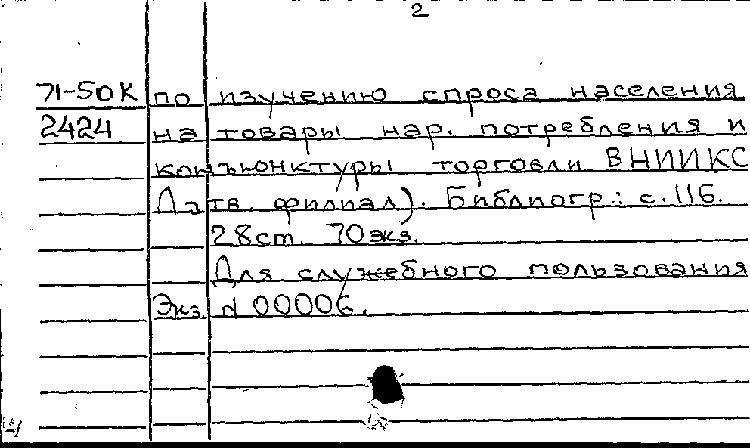 2
71-50К по изучению спроса населения
2424 на товары нар. потребления и
конъюнктуры торговли ВНИИКС
Латв. филиал). Библиогр.: с. 116.
28ст. 70экз.
Для служебного пользования
Экз. N 00006.